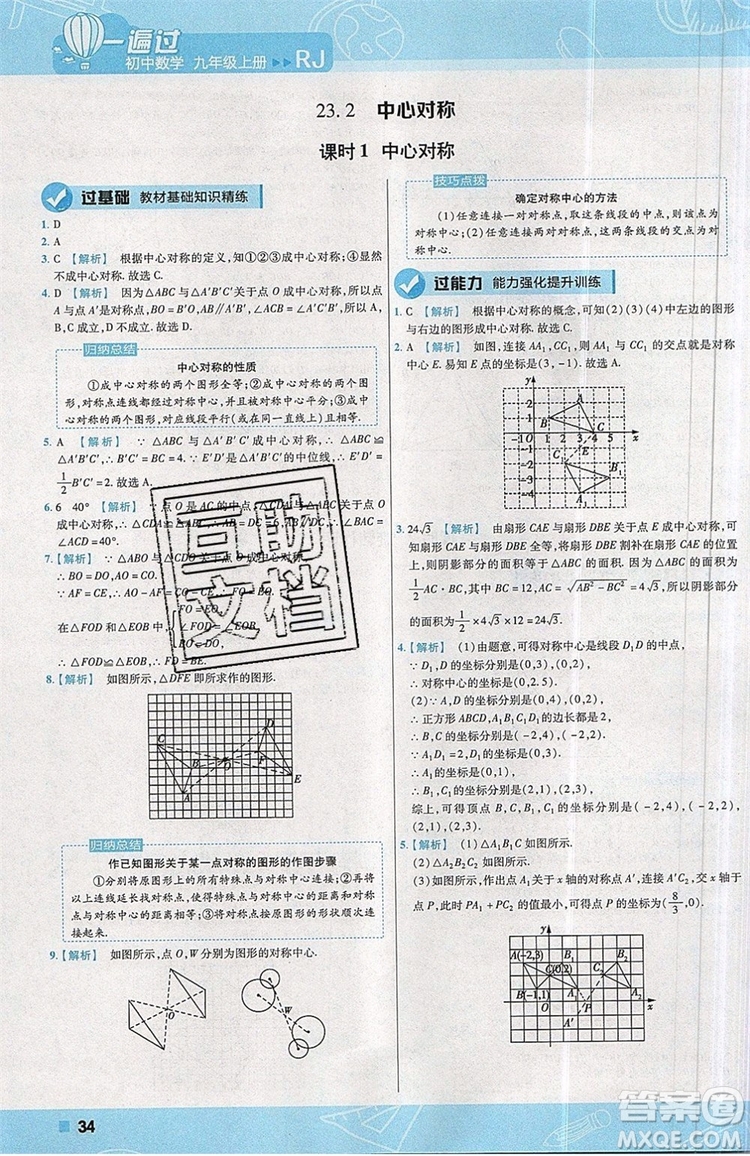 一遍过
初中数学 九年级上册 ▶▶ RJ
23.2 中心对称
课时1 中心对称
过基础 教材基础知识精练
1. D
2. A
3. C 【解析】 根据中心对称的定义,知①②③④成中心对称;⑤虽然全等,但
不成中心对称.故选 C.
4. D 【解析】 因为△ABC 与△A'B'C'关于点 O 成中心对称,所以点
A 与点 A'是对称点,BO=B'O,AB∥A'B',∠ACB=∠A'C'B',
∠ACB=∠C'A'B'不成立.故选 D.
归纳总结
中心对称的性质
①成中心对称的两个图形全等;②成中心对称的两个图
形,对称点连线都经过对称中心,并且被对称中心平分;③成中
心对称的两个图形,对应线段平行(或在同一直线上)且相等.
5. A 【解析】 ∵△ABC 与△A'B'C'成中心对称,∴△ABC≌
△A'B'C',∴B'C'=BC=4.
1/2 B'C'=2.故选 A.
6. 6 40° 【解析】
∠ACD=40°.
7. 【解析】 ∵△ABO 与△CDO
∴BO=DO,AO=CO.
∵AF=CE,∴
在△FOD 和△EOB 中,
∴△FOD≌△EOB
8. 【解析】 如图所示,△DFE 即所求作的图形.
C B A O F D E
归纳总结
作已知图形关于某一点对称的图形的作图步骤
①分别将原图形上的所有特殊点与对称中心连接;②将
以上连线延长,在延长线上找对称点,使得特殊点与对称中心
的距离和其对称点与对称中心的距离相等;③将对称点按原
图形上对应特殊点与对称中心按原图形的形状顺次连接
起来.
9. 【解析】 如图所示,点 O,W 分别为图形的对称中心.
O W
技巧点拨
确定对称中心的方法
(1)任意连接一对对称点,取这条线段的中点,则该点为对
称中心;(2)任意连接两对对称点,这两条线段的交点为对
称中心.
过能力 能力强化提升训练
1. C 【解析】 根据中心对称的概念,可知(2)(3)(4)中左边的图形
与右边的图形成中心对称.故选 C.
2. A 【解析】 如图,连接 AA₁,CC₁,则 AA₁ 与 CC₁ 的交点就是对称
中心 E.易知 E 点的坐标是(3,-1).故选 A.
y 2 1 -1 0 1 2 3 4 5 x -1 -2 -3 -4 A B C E C₁ B₁ A₁
3. 24√3 【解析】 由扇形 CAE 与扇形 DBE 关于点 E 成中心对称,可
知扇形 CAE 与扇形 DBE 全等,将其割补在扇形 CAE 的位置
上,则阴影部分的面积等于△ABC 的面积.因为△ABC 的面积=
1/2 AC·BC,其中 BC=12,AC=√(AB²-BC²)=4√3,所以阴影部分
的面积为 1/2×4√3×12=24√3.
4. 【解析】 (1)由题意,可得对称中心是线段 D₁D 的中点,
∵D₁,D 的坐标分别是(0,3),(0,2),
∴对称中心的坐标是(0,2.5).
(2)∵A,D 的坐标分别是(0,4),(0,2),
∴正方形 ABCD,A₁B₁C₁D₁ 的边长都是2,
∴B,C 的坐标分别是(-2,4),(-2,2).
∵A₁D₁=2,D₁ 的坐标是(0,3),
∴A₁ 的坐标是(0,1),
∴B₁,C₁ 的坐标分别是(2,1),(2,3),
综上,可得顶点 B,C,B₁,C₁ 的坐标分别是(-2,4),(-2,2),
(2,1),(2,3).
5. 【解析】 (1)△A₁B₁C 如图所示.
(2)△A₂B₂C₂ 如图所示.
(3)如图所示,作出点 A₁ 关于 x 轴的对称点 A',连接 A'C₂,交 x 轴于
点 P,此时 PA₁+PC₂ 的值最小,可得点 P 的坐标为(8/3,0).
A(-2,3) y B₁ B₂ C(0,2) C₂ B(-1,1) A₁ A₂ O P x A'
互助
文档
34
答案圈
MXQE.COM